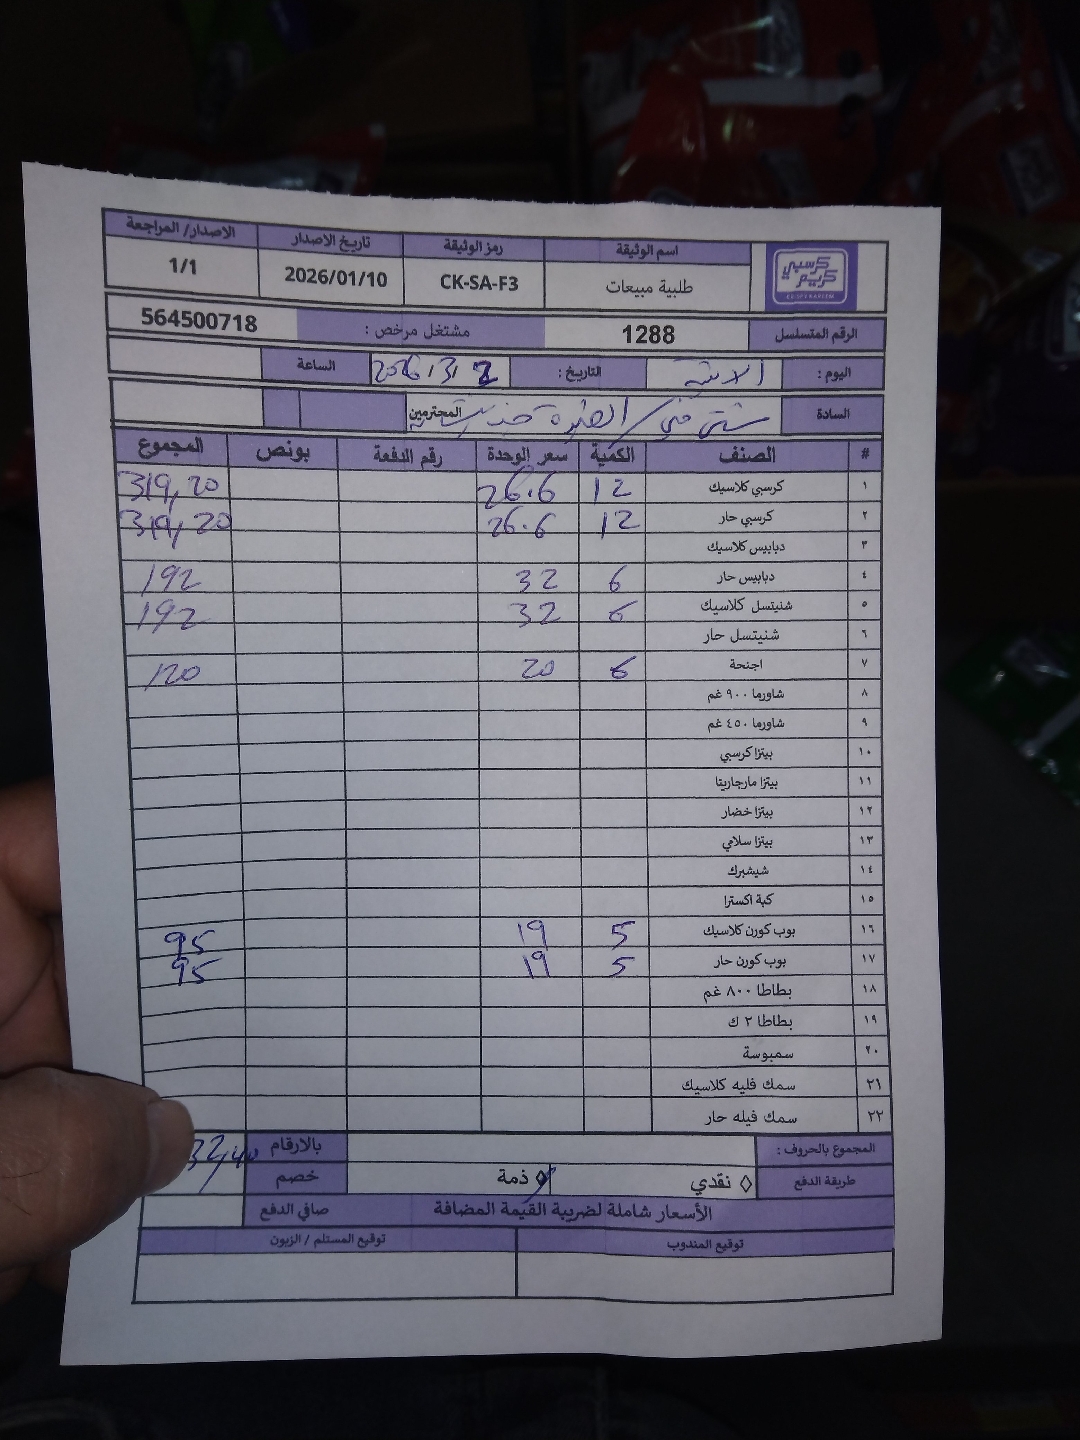 اسم الوثيقة رمز الوثيقة تاريخ الاصدار الاصدار/ المراجعة
كرسبي كريم
طلبية مبيعات CK-SA-F3 2026/01/10 1/1
الرقم المتسلسل 1288 مشتغل مرخص : 564500718
اليوم : التاريخ : 2026/3/2 الساعة
السادة المحترمين
# الصنف الكمية سعر الوحدة رقم الدفعة بونص المجموع
١ كرسبي كلاسيك 12 26.6 319,20
٢ كرسبي حار 12 26.6 319,20
٣ دبابيس كلاسيك
٤ دبابيس حار 6 32 192
٥ شنيتسل كلاسيك 6 32 192
٦ شنيتسل حار
٧ اجنحة 6 20 120
٨ شاورما ٩٠٠ غم
٩ شاورما ٤٥٠ غم
١٠ بيتزا كرسبي
١١ بيتزا مارجاريتا
١٢ بيتزا خضار
١٣ بيتزا سلامي
١٤ شيشبرك
١٥ كبة اكسترا
١٦ بوب كورن كلاسيك 5 19 95
١٧ بوب كورن حار 5 19 95
١٨ بطاطا ٨٠٠ غم
١٩ بطاطا ٢ ك
٢٠ سمبوسة
٢١ سمك فليه كلاسيك
٢٢ سمك فيله حار
المجموع بالحروف : بالارقام 32,40
طريقة الدفع نقدي ذمة خصم
الأسعار شاملة لضريبة القيمة المضافة صافي الدفع
توقيع المندوب توقيع المستلم / الزبون